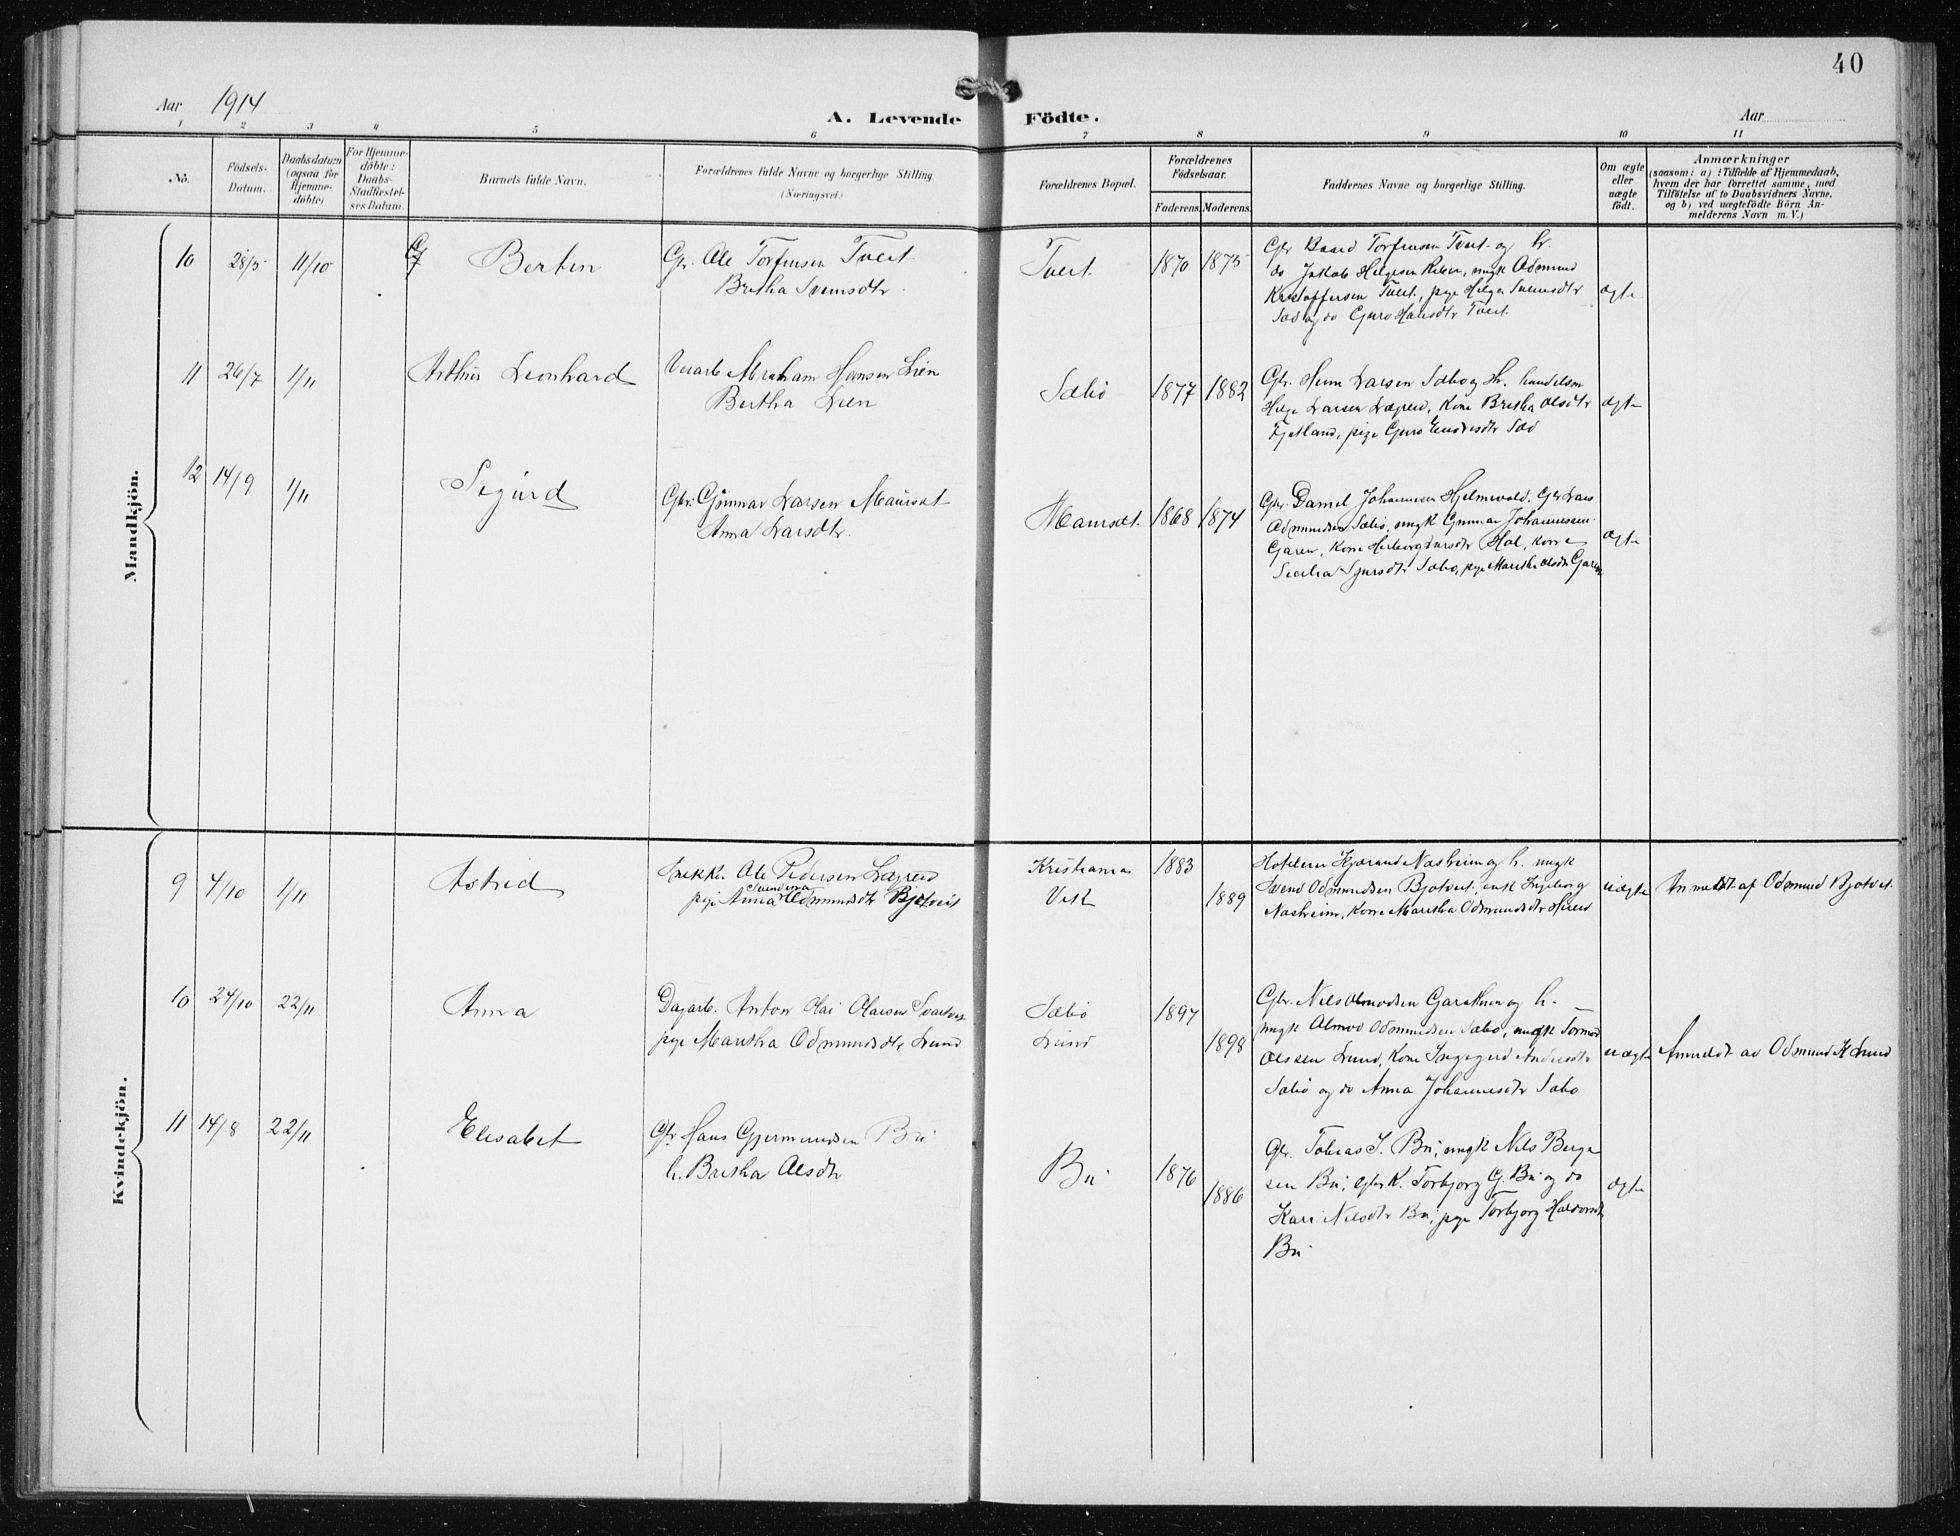 40
Aar 1914
A. Levende Födte.
Aar
1 2 3 4 5 6 7 8 9 10 11
No.
Födsels-Datum.
Daabsdatum (ogsaa for Hjemme-döbte)
For Hjemme-döbte: Daabs-Stadfæstel-ses Datum.
Barnets fulde Navn.
Forældrenes fulde Navne og borgerlige Stilling (Næringsvei.)
Forældrenes Bopæl.
Forældrenes Födselsaar.
Faderens. Moderens.
Faddernes Navne og borgerlige Stilling.
Om ægte eller uægte födt.
Anmærkninger
(saasom: a) i Tilfælde af Hjemmedaab, hvem der har forrettet samme, med Tilföielse af to Daabsvidners Navne, og b) ved uægtefödte Börn An-melderens Navn m. V.)
Mandkjön.
10 28/5 11/10 Berten
Gbr. Ole Torfinsen Tveit
Bretha Svensdtr.
Tveit 1870 1875
Gbr Baard Torfinsen Tveit og h.
do Jakob Helgesen, ungk Odmund
Kristoffersen Tveit, pige Helga Svensdtr
Sæd og do Guro Hansdtr Tveit
ægte
11 26/7 1/11 Arthur Leonhard
Abraham Hansen Lien
Bertha Lien
Sæbö 1877 1882
Gbr. Larsen Sæbo og h. handelsm
Helge Larsen Lægreid, Kone Bretha Olsdtr
Fjetland, pige Guro
ægte
12 14/9 1/11 Sigurd
Gbr. Gunnar Larsen Maursæt
Anna Larsdtr.
Maursæt. 1868 1874
Gbr. Daniel Johannesen Hjelmevold, Gbr Lars
Odmundsen Sæbö, ungk Gunnar Johannesen
Garen, Kone Herborg Larsdtr Hol, Kone
Secilia Sjursdtr Sæbo, pige Maritha Olsdtr Garen
ægte
Kvindekjön.
9 4/10 1/11 Astrid
Snekk. Ole Pedersen Lægreid
pige Anna Odmundsdtr Bjotveit
Kristiania
Vik
1883
1889
Hotelier Kjærand Næsheim og h. ungk
Svend Odmundsen Bjotveit, enk Ingeborg
Næsheim, Kone Maritha Odmundsdtr
uægte
Anmeldt af Odmund Bjotvet
10 24/10 22/11 Anna
Dagarb. Anton Olai Olavsen
pige Maritha Odmundsdtr Lund
Sæbö
Lund
1897
1898
Gbr. Nils Olmodsen Garathun og h.
ungk Olmod Odmundsen Sæbö, ungk Tormod
Olssen Lund, Kone Ingegerd Andersdtr
Sæbö og do Anna Johannesdtr Sæbo
uægte
Anmeldt av Odmund K Lund
11 14/8 22/11 Elisabet
Gbr Hans Gjermundsen Bu
h. Bretha Olsdtr
Bu
1876
1886
Gbr. Tobias S. Bu, ungk Nils Berge
sen Bu, gbrk. Torbjorg G. Bu og do
Kari Nilsdtr Bu, pige Torbjorg Haldorsdtr
Bu
ægte